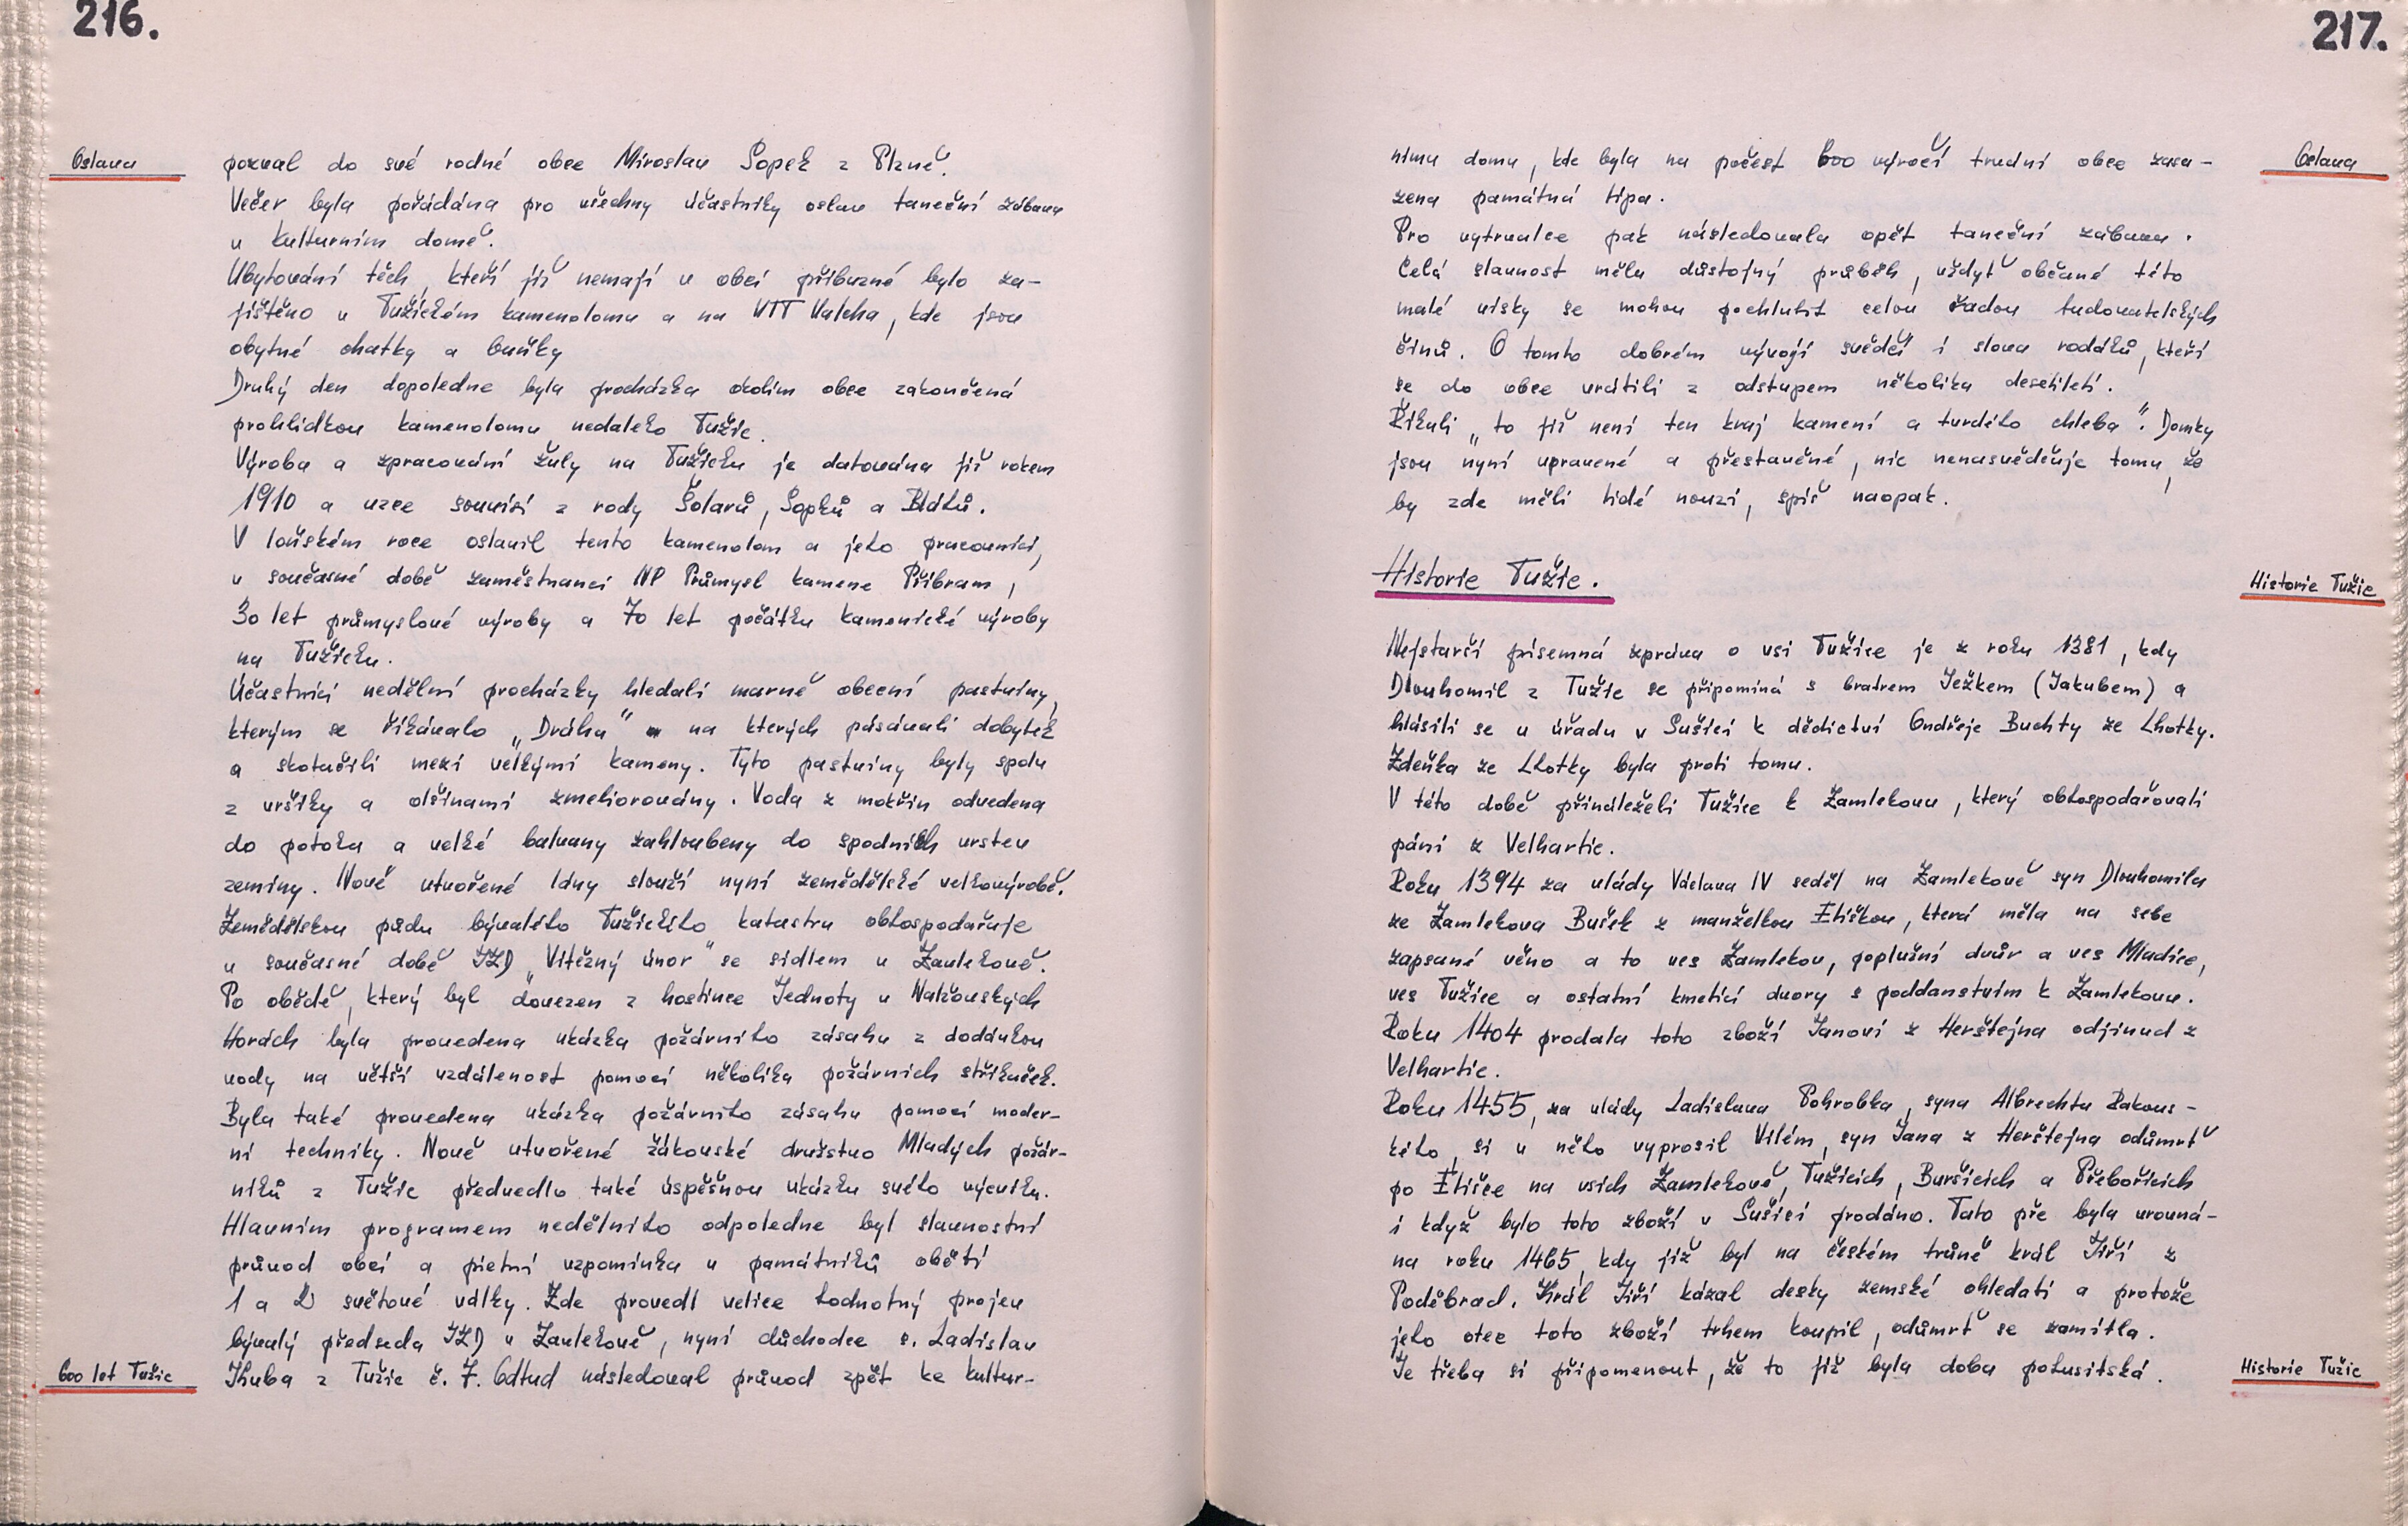 216.
Oslava
pozval do své rodné obce Miroslav Šopek z Plzně.
Večer byla pořádána pro všechny účastníky oslav taneční zábava
v kulturním domě.
Ubytování těch, kteří již nemají v obci příbuzné bylo za-
jištěno v Tužickém kamenolomu a na VTT Valcha, kde jsou
obytné chatky a buňky
Druhý den dopoledne byla procházka okolím obce zakončená
prohlídkou kamenolomu nedaleko Tužic.
Výroba a zpracování žuly na Tužicku je datována již rokem
1910 a uzce souvisí z rody Šolarů, Šopků a Bláhů.
V loňském roce oslavil tento kamenolom a jeho pracovníci,
v současné době zaměstnanci NP Průmysl kamene Příbram,
30 let průmyslové výroby a 70 let počátku kamenické výroby
na Tužicku.
Účastníci nedělní procházky hledali marně obecní pastviny,
kterým se říkávalo „Dráha" na kterých pásávali dobytek
a skotačili mezi velkými kameny. Tyto pastviny byly spolu
z vršíky a olšinami zmeliorovány. Voda z mokřin odvedena
do potoka a velké balvany zahloubeny do spodních vrstev
zeminy. Nově utvořené lány slouží nyní zemědělské velkovýrobě.
Zemědělskou půdu bývalého Tužického katastru obhospodařuje
v současné době JZD „Vítězný únor" se sídlem v Zavlekově.
Po obědě, který byl dovezen z hostince Jednoty v Nalžovských
Horách byla provedena ukázka požárního zásahu z dodávkou
vody na větší vzdálenost pomocí několika požárních stříkaček.
Byla také provedena ukázka požárního zásahu pomocí moder-
ní techniky. Nově utvořené žákovské družstvo Mladých požár-
níků z Tužic předvedlo také úspěšnou ukázku svého výcviku.
Hlavním programem nedělního odpoledne byl slavnostní
průvod obcí a pietní vzpomínka u památníků obětí
1 a 2 světové války. Zde provedl velice hodnotný projev
bývalý předseda JZD v Zavlekově, nyní důchodce s. Ladislav
600 let Tužic
Kuba z Tužic č. 7. Odtud následoval průvod zpět ke kultur-
217.
Oslava
nímu domu, kde byla na počest 600 výročí trvání obce zasa-
zena památná lípa.
Pro vytrvalce pak následovala opět taneční zábava.
Celá slavnost měla důstojný průběh, vždyť občané této
malé vísky se mohou pochlubit celou řadou budovatelských
činů. O tomto dobrém vývoji svědčí i slova rodáků, kteří
se do obce vrátili z odstupem několika desetiletí.
Říkali „to již není ten kraj kamení a tvrdého chleba". Domky
jsou nyní upravené a přestavěné, nic nenasvědčuje tomu, že
by zde měli lidé nouzi, spíš naopak.
Historie Tužic.
Historie Tužic
Nejstarší písemná zpráva o vsi Tužice je z roku 1381, kdy
Dlouhomil z Tužic se připomíná s bratrem Ježkem (Jakubem) a
hlásili se u úřadu v Sušici k dědictví Ondřeje Buchty ze Lhotky.
Zdeňka ze Lhotky byla proti tomu.
V této době přináleželi Tužice k Zamlekovu, který obhospodařovali
páni z Velhartic.
Roku 1394 za vlády Václava IV seděl na Zamlekově syn Dlouhomila
ze Zamlekova Bušek z manželkou Eliškou, která měla na sebe
zapsané věno a to ves Zamlekov, poplužní dvůr a ves Mladice,
ves Tužice a ostatní kmetící dvory s poddanstvím k Zamlekovu.
Roku 1404 prodala toto zboží Janovi z Herštejna odjinud z
Velhartic.
Roku 1455, za vlády Ladislava Pohrobka, syna Albrechta Rakous-
kého, si u něho vyprosil Vilém, syn Jana z Herštejna odúmrť
po Elišce na vsích Zamlekově, Tužicích, Buršicích a Přebořicích
i když bylo toto zboží v Sušici prodáno. Tato pře byla urovná-
na roku 1465, kdy již byl na českém trůně král Jiří z
Poděbrad. Král Jiří kázal desky zemské ohledati a protože
jeho otec toto zboží trhem koupil, odůmrť se zamítla.
Je třeba si připomenout, že to již byla doba pohusitská.
Historie Tužic